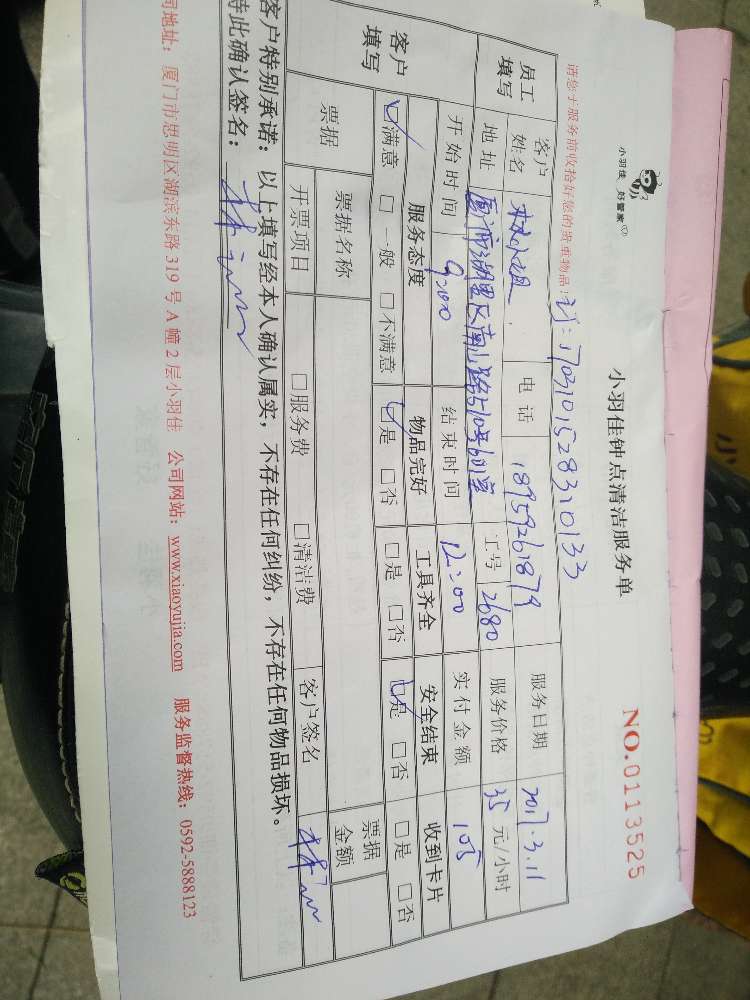 小羽佳 好管家
小羽佳钟点清洁服务单
NO.0113525
请您于服务前收拾好您的贵重物品！ 订：17031015283210133
员工填写 客户姓名 林小姐 电话 18959261879 服务日期 2017.3.11
地址 厦门市湖里区南山路510号601室 工号 2680 服务价格 35 元/小时
开始时间 9:00 结束时间 12:00 实付金额 105
客户填写 服务态度 物品完好 工具齐全 安全结束 收到卡片
☑满意 □一般 □不满意 ☑是 □否 □是 □否 ☑是 □否 □是 □否
票据 票据名称 票据金额
开票项目 □服务费 □清洁费 客户签名
客户特别承诺：以上填写经本人确认属实，不存在任何纠纷，不存在任何物品损坏。
特此确认签名：
司地址：厦门市思明区湖滨东路 319 号 A 幢 2 层小羽佳 公司网站：www.xiaoyujia.com 服务监督热线：0592-5888123